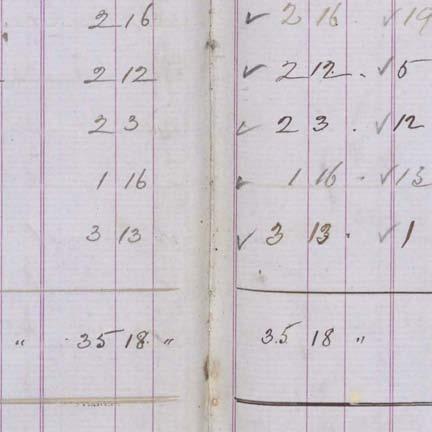 2 16 ✓ 2 16 ✓ 19
2 12 ✓ 2 12 . ✓ 5
2 3 ✓ 2 3 . ✓ 12
1 16 ✓ 1 16 . ✓ 13
3 13 ✓ 3 13 . ✓ 1
" 35 18 " 35 18 "